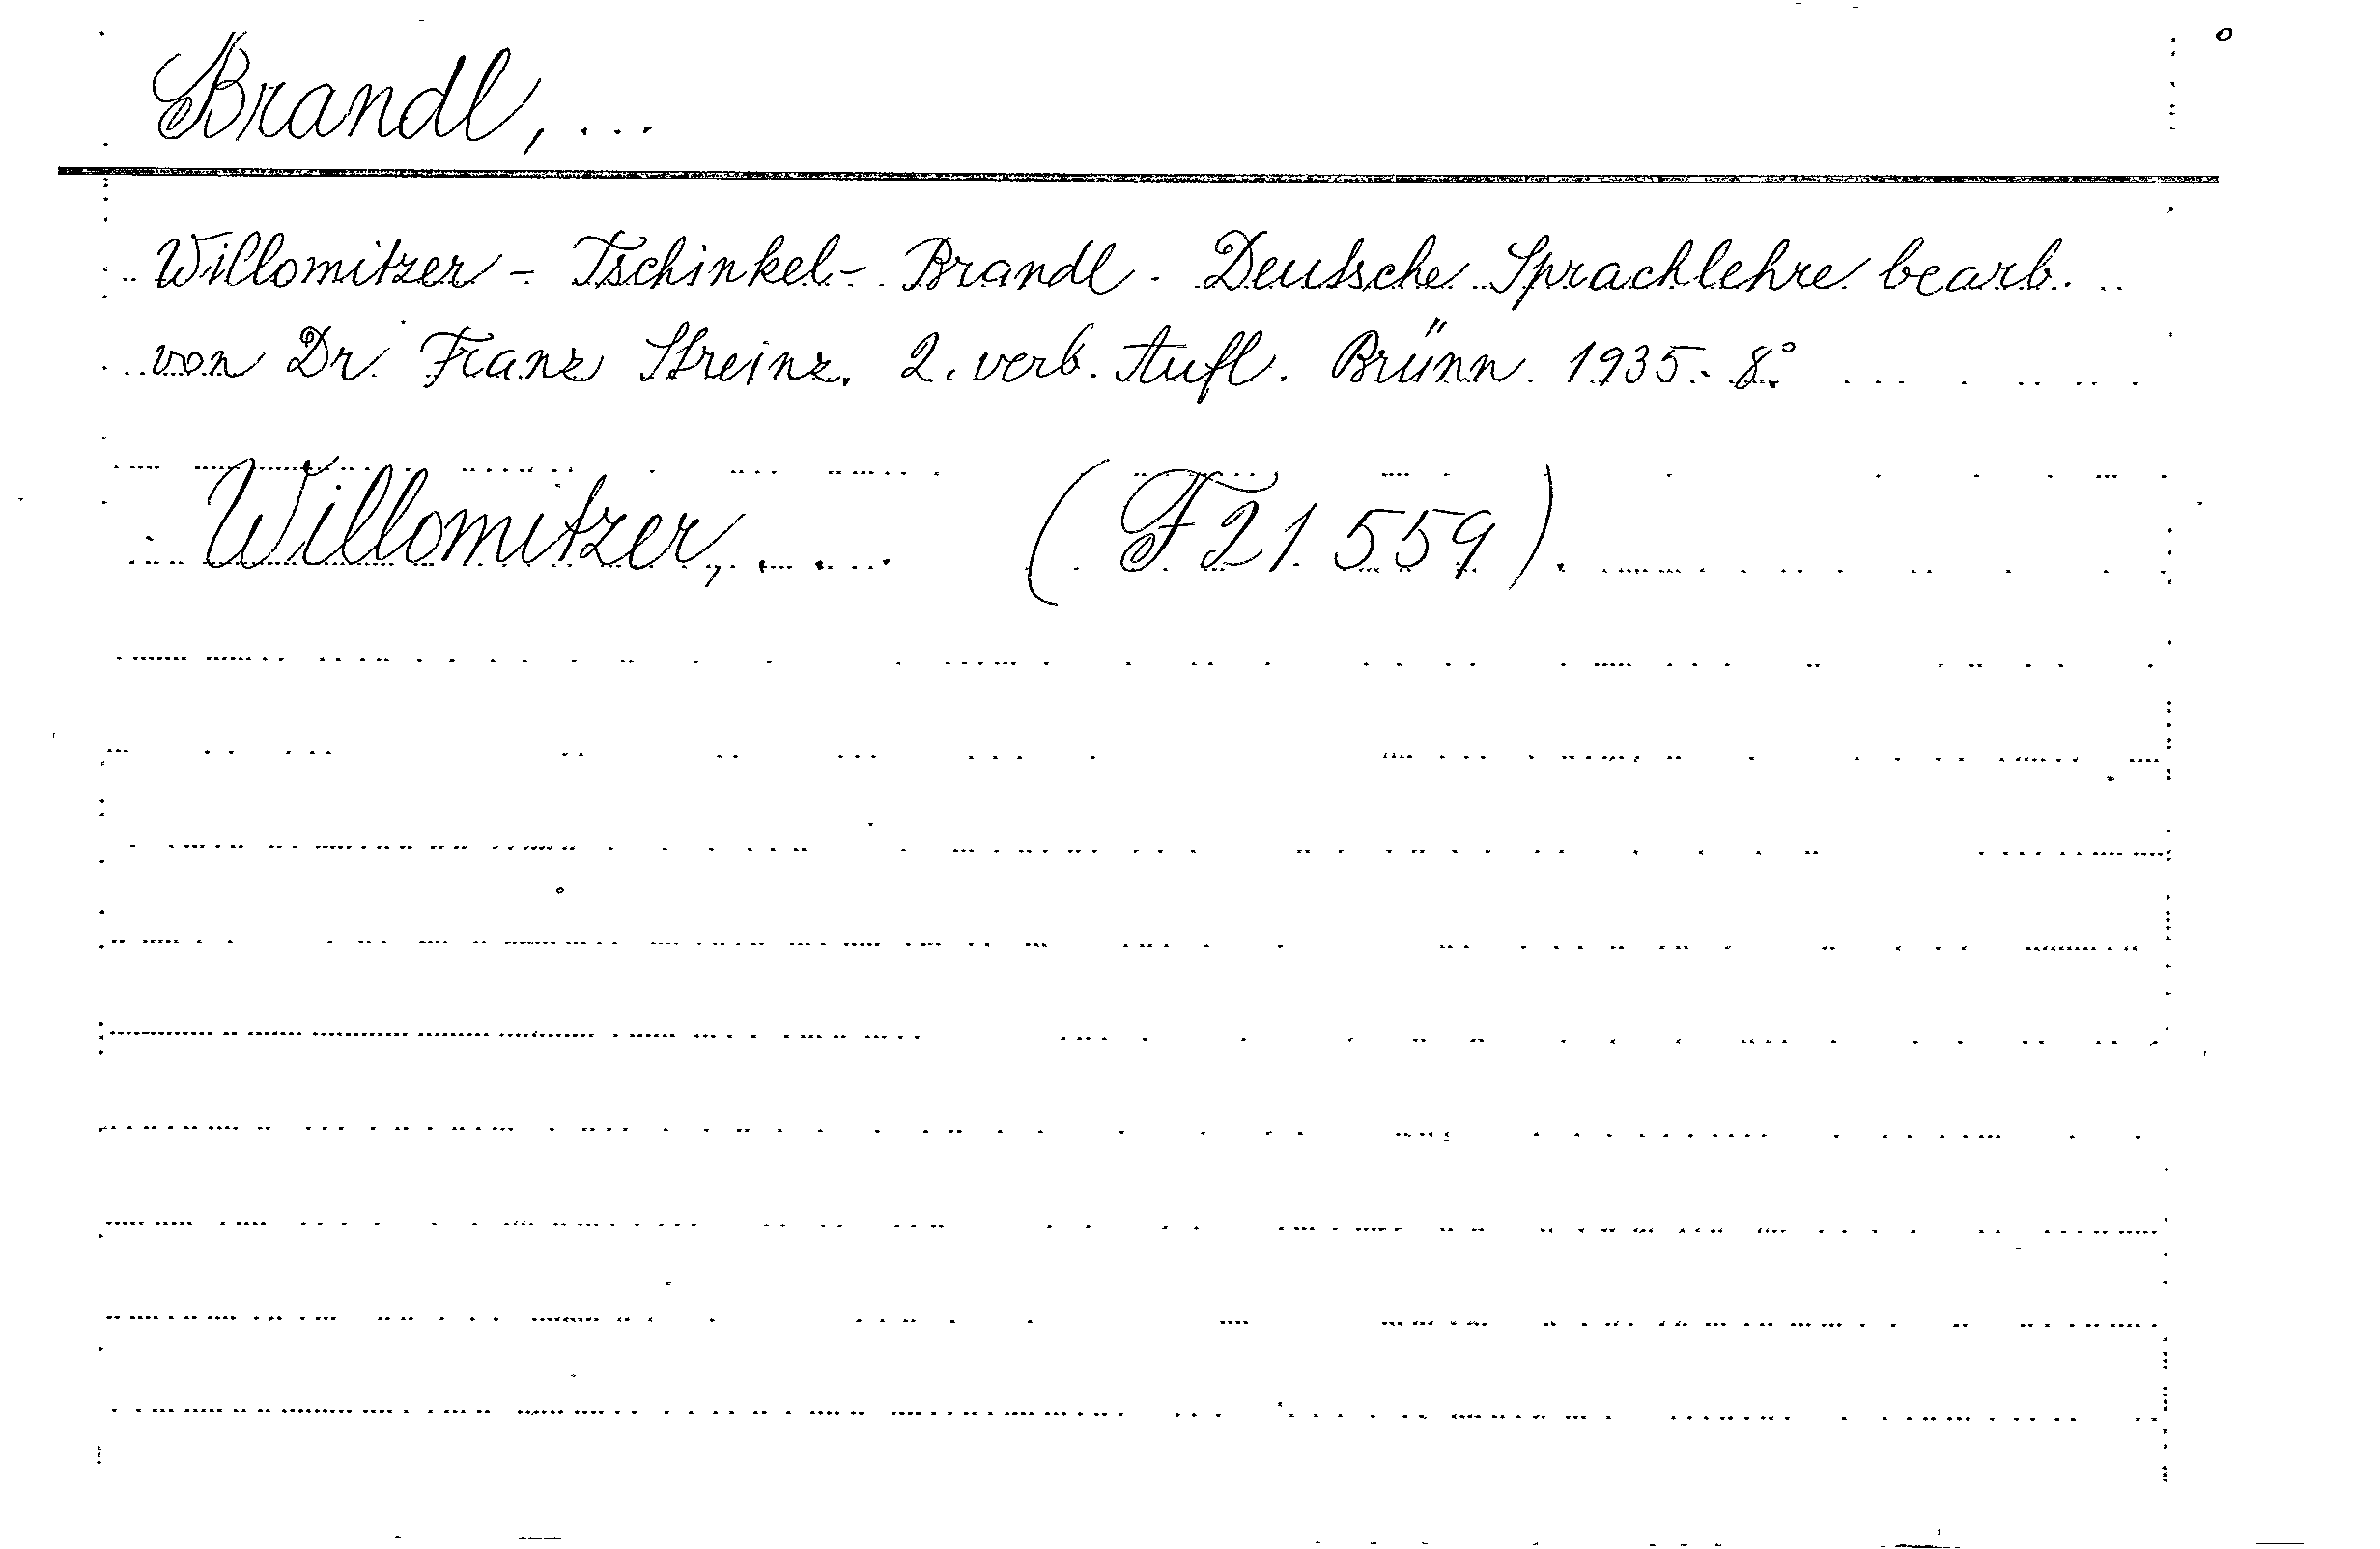 Brandl, ...
Willomitzer - Tschinkel - Brandl. Deutsche Sprachlehre bearb.
von Dr. Franz Streinz. 2. verb. Aufl. Brünn. 1935.- 8°
Willomitzer, .... (F 21.559).